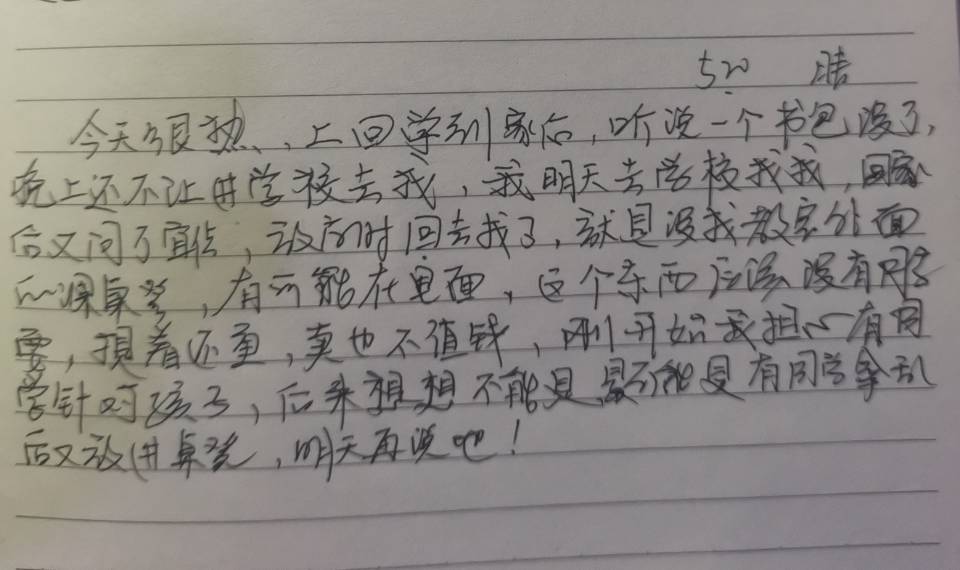 5.20 晴
今天很热，上回学到家后，听说一个书包没了，
晚上还不让进学校去找，我明天去学校找找，回家
后又问了，放学时回去找了，就是没找教室外面
的课桌凳，有可能在里面，这个东西应该没有同学
要，损着还重，卖也不值钱，刚开始我担心有同
学针对孩子，后来想想不能是，最可能是有同学拿乱
后又放进桌凳，明天再说吧！